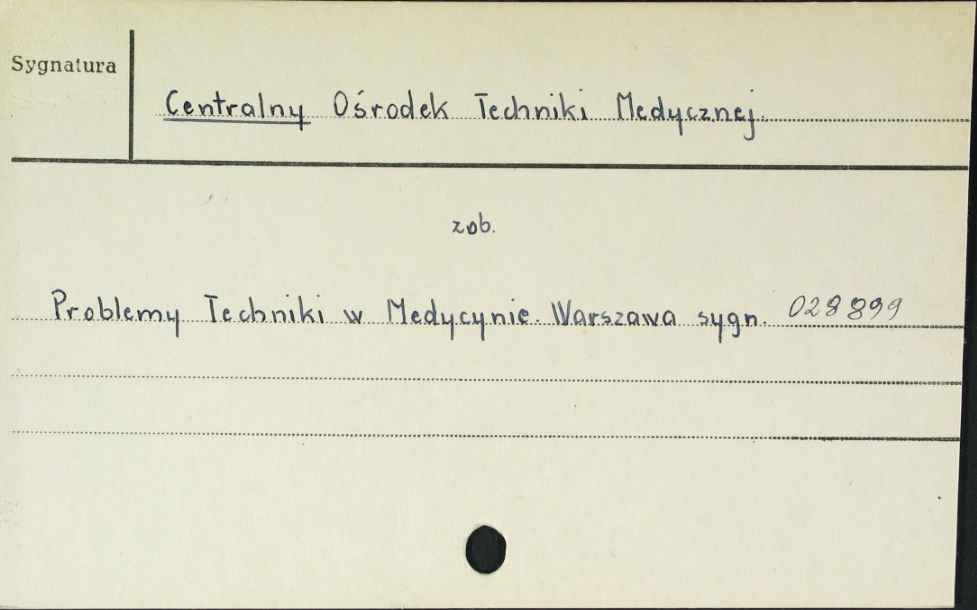 Sygnatura
Centralny Ośrodek Techniki Medycznej.
zob.
Problemy Techniki w Medycynie. Warszawa sygn. 028899